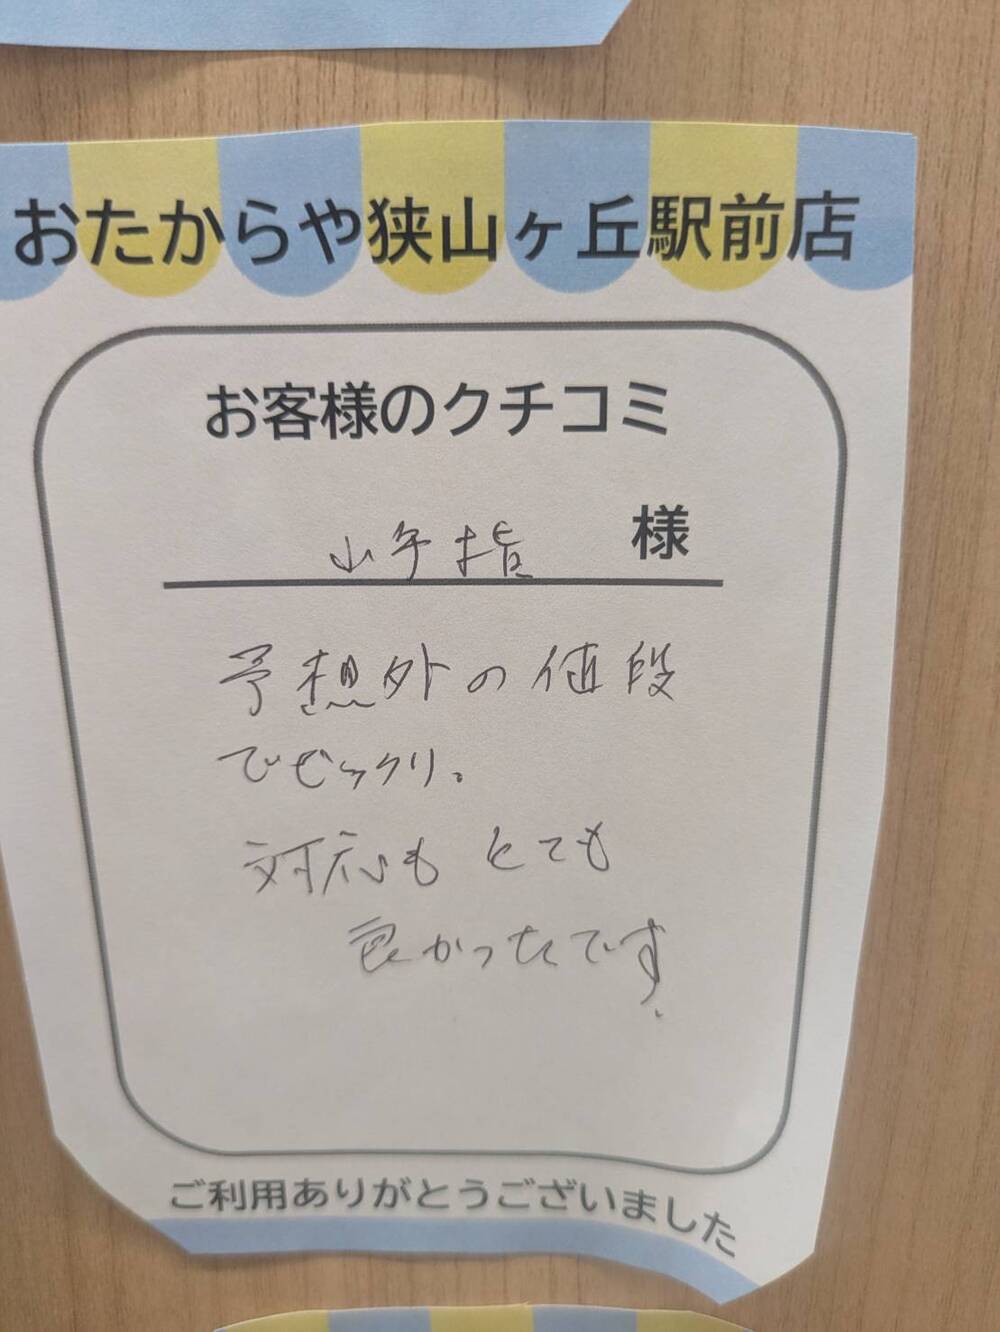 おたからや狭山ヶ丘駅前店
お客様のクチコミ
様
予想外の値段
でビックリ。
対応もとても
良かったです.
ご利用ありがとうございました